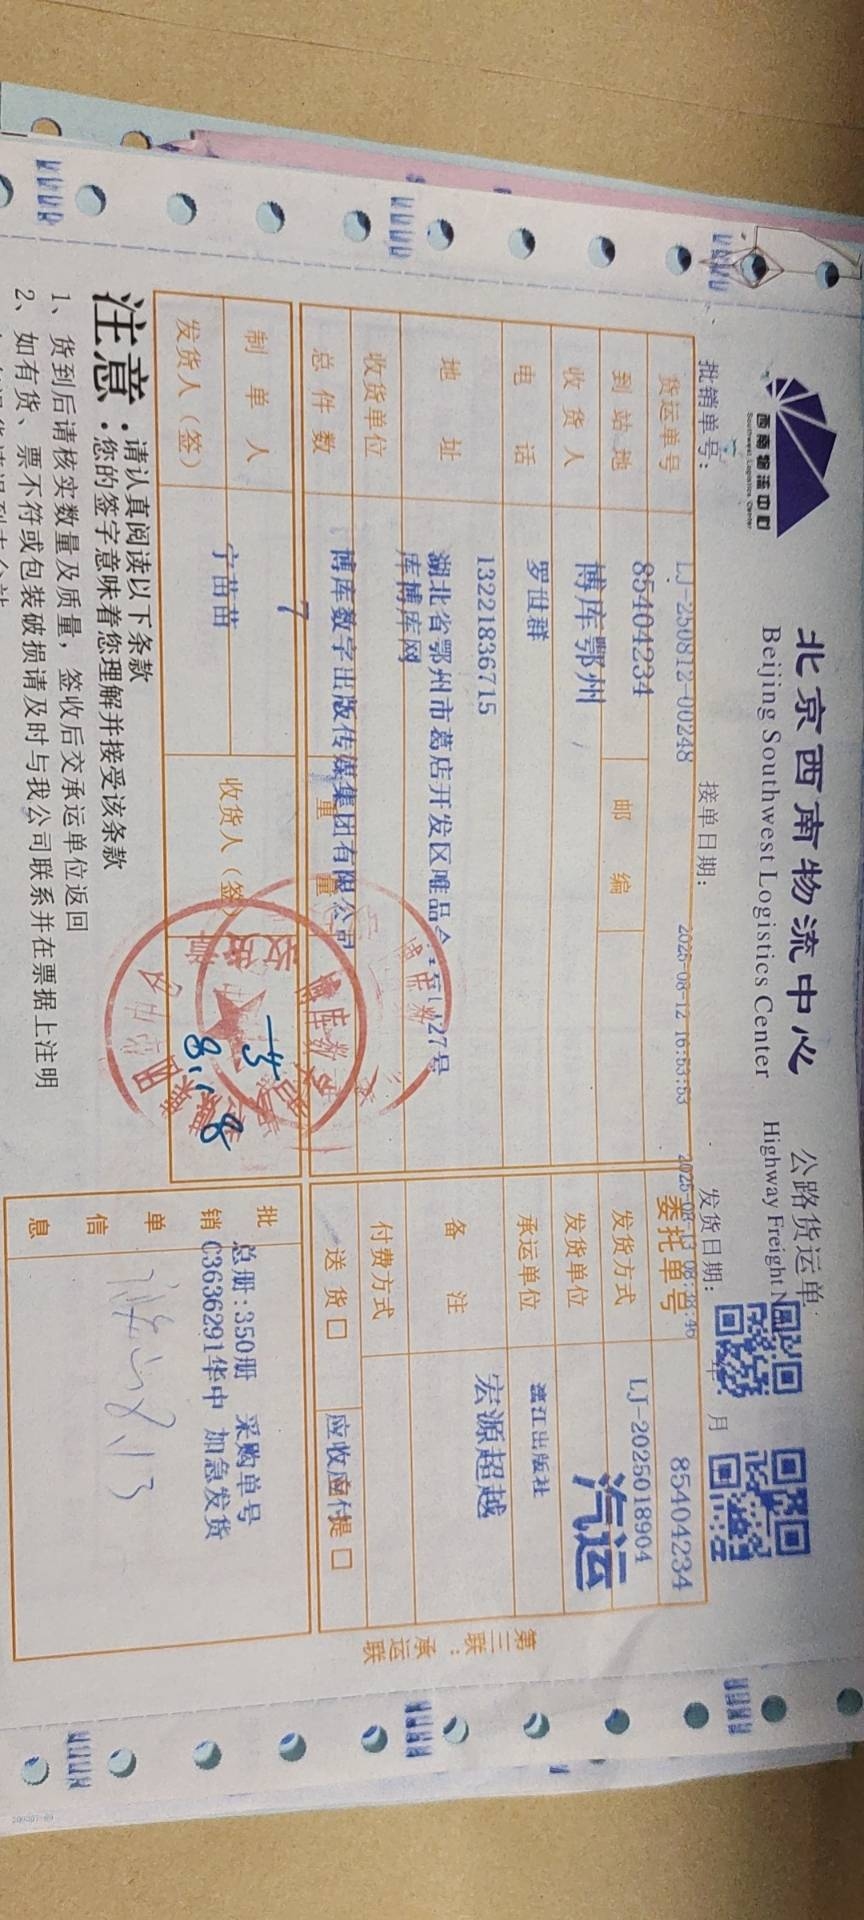 西南物流中心
Southwest Logistics Center
北京西南物流中心 公路货运单
Beijing Southwest Logistics Center Highway Freight
批销单号： 接单日期： 2025-08-12 16:53:53 发货日期： 年 月
LJ-250812-00248 2025-08-13 08:38:46
货运单号 85404234 委托单号 85404234
到站地 博库鄂州 邮编 发货方式 LJ-2025018904
汽运
收货人 罗世群 发货单位
电话 13221836715 承运单位 浙江出版社
地址 湖北省鄂州市葛店开发区唯品 27号 备注 宏源超越
库博库网
收货单位 博库数字出版传媒集团有限公司 付费方式
总件数 7 重量 送货□ 应收应付 提□
制单人 收货人（签）
发货人（签） 宁苗苗
8.18
批销单信息
总册：350册 采购单号
C3636291华中 加急发货
8.13
第三联：承运联
注意：请认真阅读以下条款
您的签字意味着您理解并接受该条款
1、货到后请核实数量及质量，签收后交承运单位返回
2、如有货、票不符或包装破损请及时与我公司联系并在票据上注明